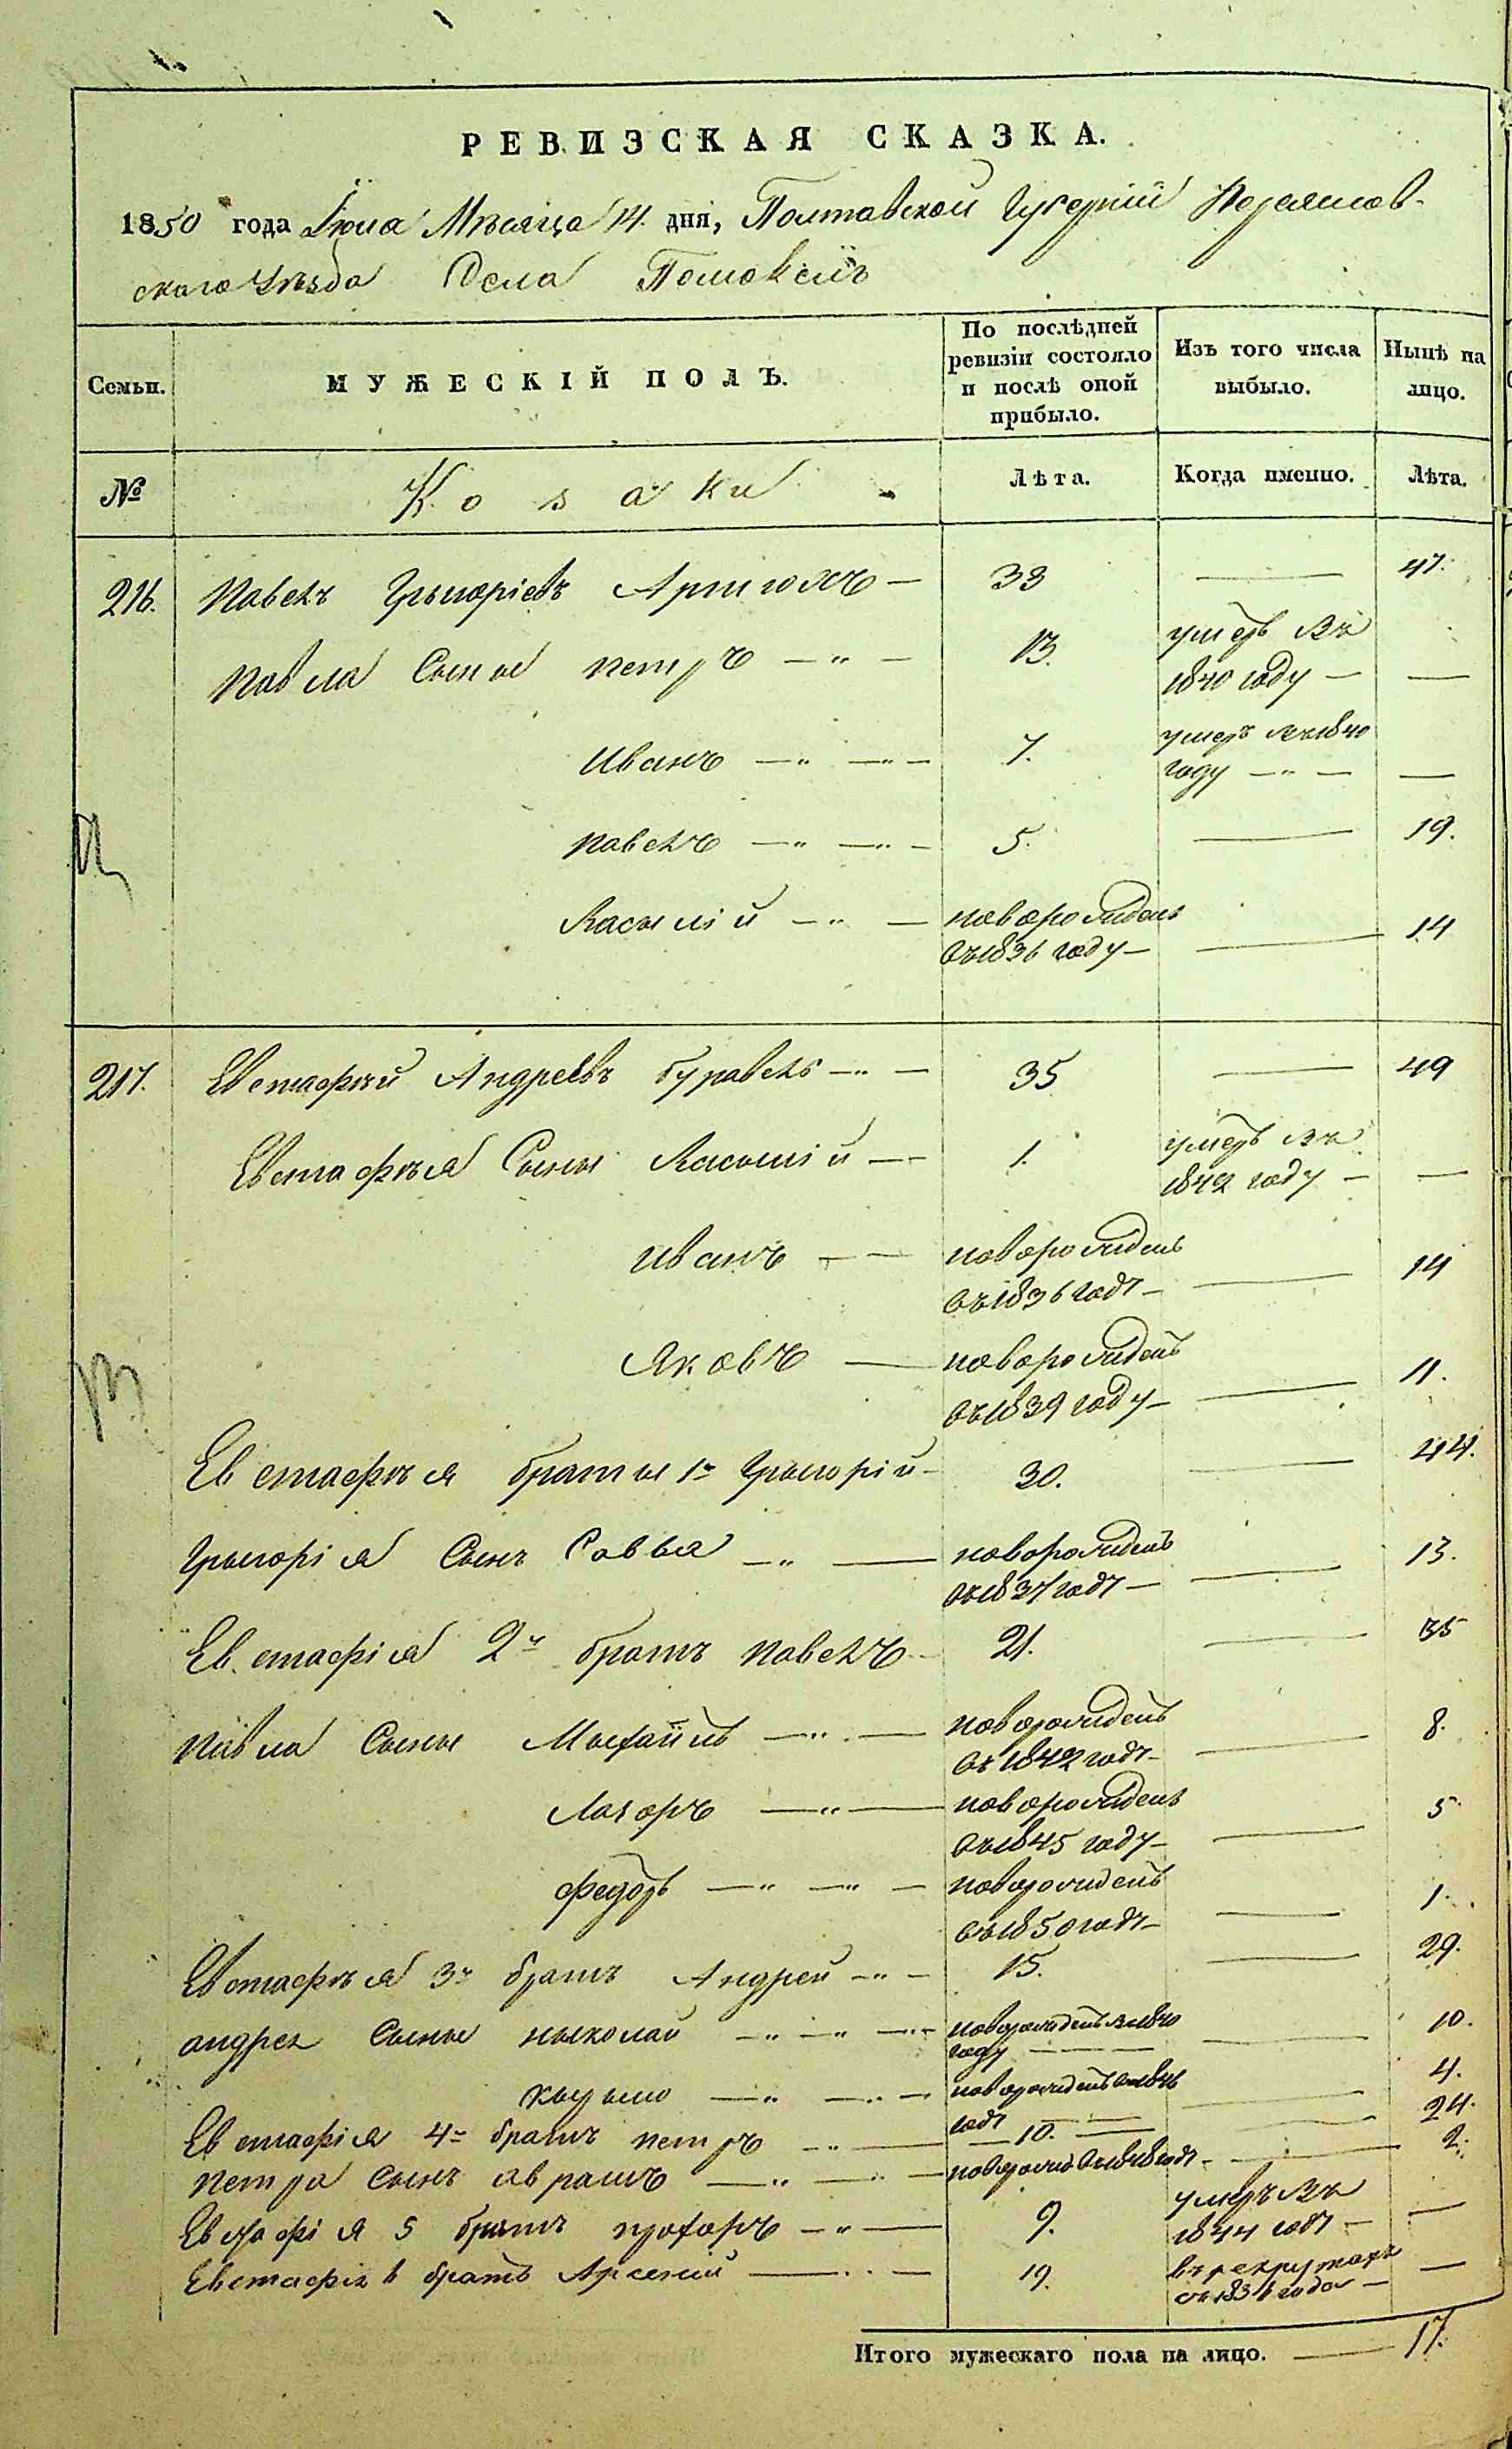 РЕВИЗСКАЯ СКАЗКА.
1850 года Июня Мѣсяца 14. дня, Полтавской Губерніи
скаго Уѣзда Села
Семьи.
МУЖЕСКІЙ ПОЛЪ.
По послѣдней ревизіи состояло и послѣ оной прибыло.
Изъ того числа выбыло.
Нынѣ на лицо.
№
Козаки
Лѣта.
Когда именно.
Лѣта.
216. Павелъ Грыгоріевъ — 33 — 47.
Павла Сыны Петръ — „ — 13. умеръ Въ
1840 году — —
Иванъ — „ — „ — 7. умеръ Въ 1840
году — „ — —
Павелъ — „ — „ — 5. — 19.
Василій — „ — новорожденъ
въ 1836 году — — 14
217. Евстафій Андреевъ Буравель — „ — 35 — 49
Евстафѣя Сыны Василій — 1. умеръ Въ
1842 году — —
Иванъ — — новорожденъ
въ 1836 годѣ — — 14
Яковъ — новорожденъ
въ 1839 году — — 11.
Евстафѣя братья 1й Грыгорій — 30. — 44.
Грыгорія Сынъ Савва — „ — новорожденъ
въ 1837 годѣ — — 13.
Евстафія 2й братъ Павелъ — 21. — 35
Павла Сыны Мыхаилъ — „ — новорожденъ
въ 1842 годѣ — — 8.
Лазоръ — „ — новорожденъ
въ 1845 году — — 5
Федоръ — „ — „ — новорожденъ
въ 1850 годѣ — — 1.
Евстафѣя 3й братъ Андрей — „ — 15. — 29.
Андрея Сыны Ныколай — „ — „ — „ — новорожденъ въ 1840
году — — 10.
Кырыло — „ — „ — новорожденъ въ 1846
годѣ — — 4.
Евстафія 4й братъ Петръ — „ — 10. — 24.
Петра Сынъ Аврамъ — „ — „ — новорожд въ 1848 годѣ — — 2.
Евстафія 5 братъ Прохоръ — „ — 9. умеръ Въ
1844 годѣ — —
Евстафія 6 братъ Арсеній — „ — 19. въ рекрутахъ
съ 1836 года — —
Итого мужескаго пола на лицо. — 17.